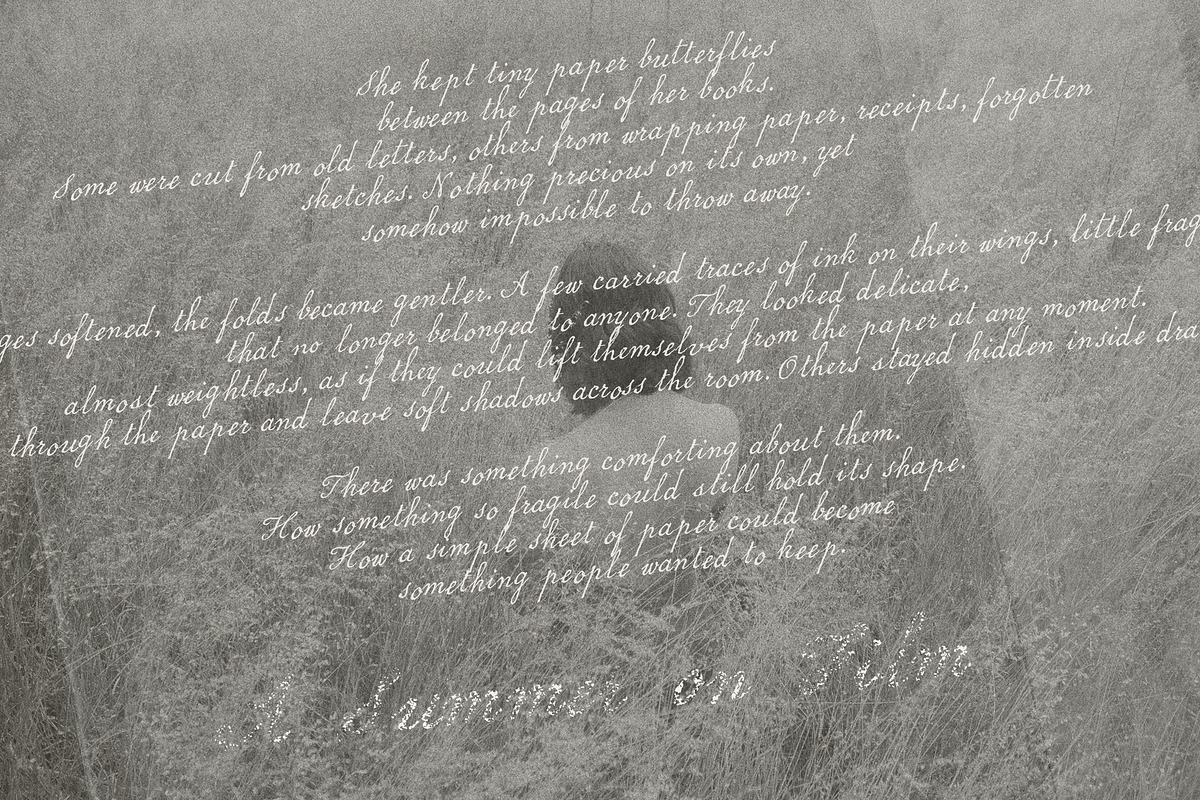 She kept tiny paper butterflies
between the pages of her books.
Some were cut from old letters, others from wrapping paper, receipts, forgotten
sketches. Nothing precious on its own, yet
somehow impossible to throw away.
softened, the folds became gentler. A few carried traces of ink on their wings, little
that no longer belonged to anyone. They looked delicate,
almost weightless, as if they could lift themselves from the paper at any moment.
through the paper and leave soft shadows across the room. Others stayed hidden inside
There was something comforting about them.
How something so fragile could still hold its shape.
How a simple sheet of paper could become
something people wanted to keep.
A Summer on Film